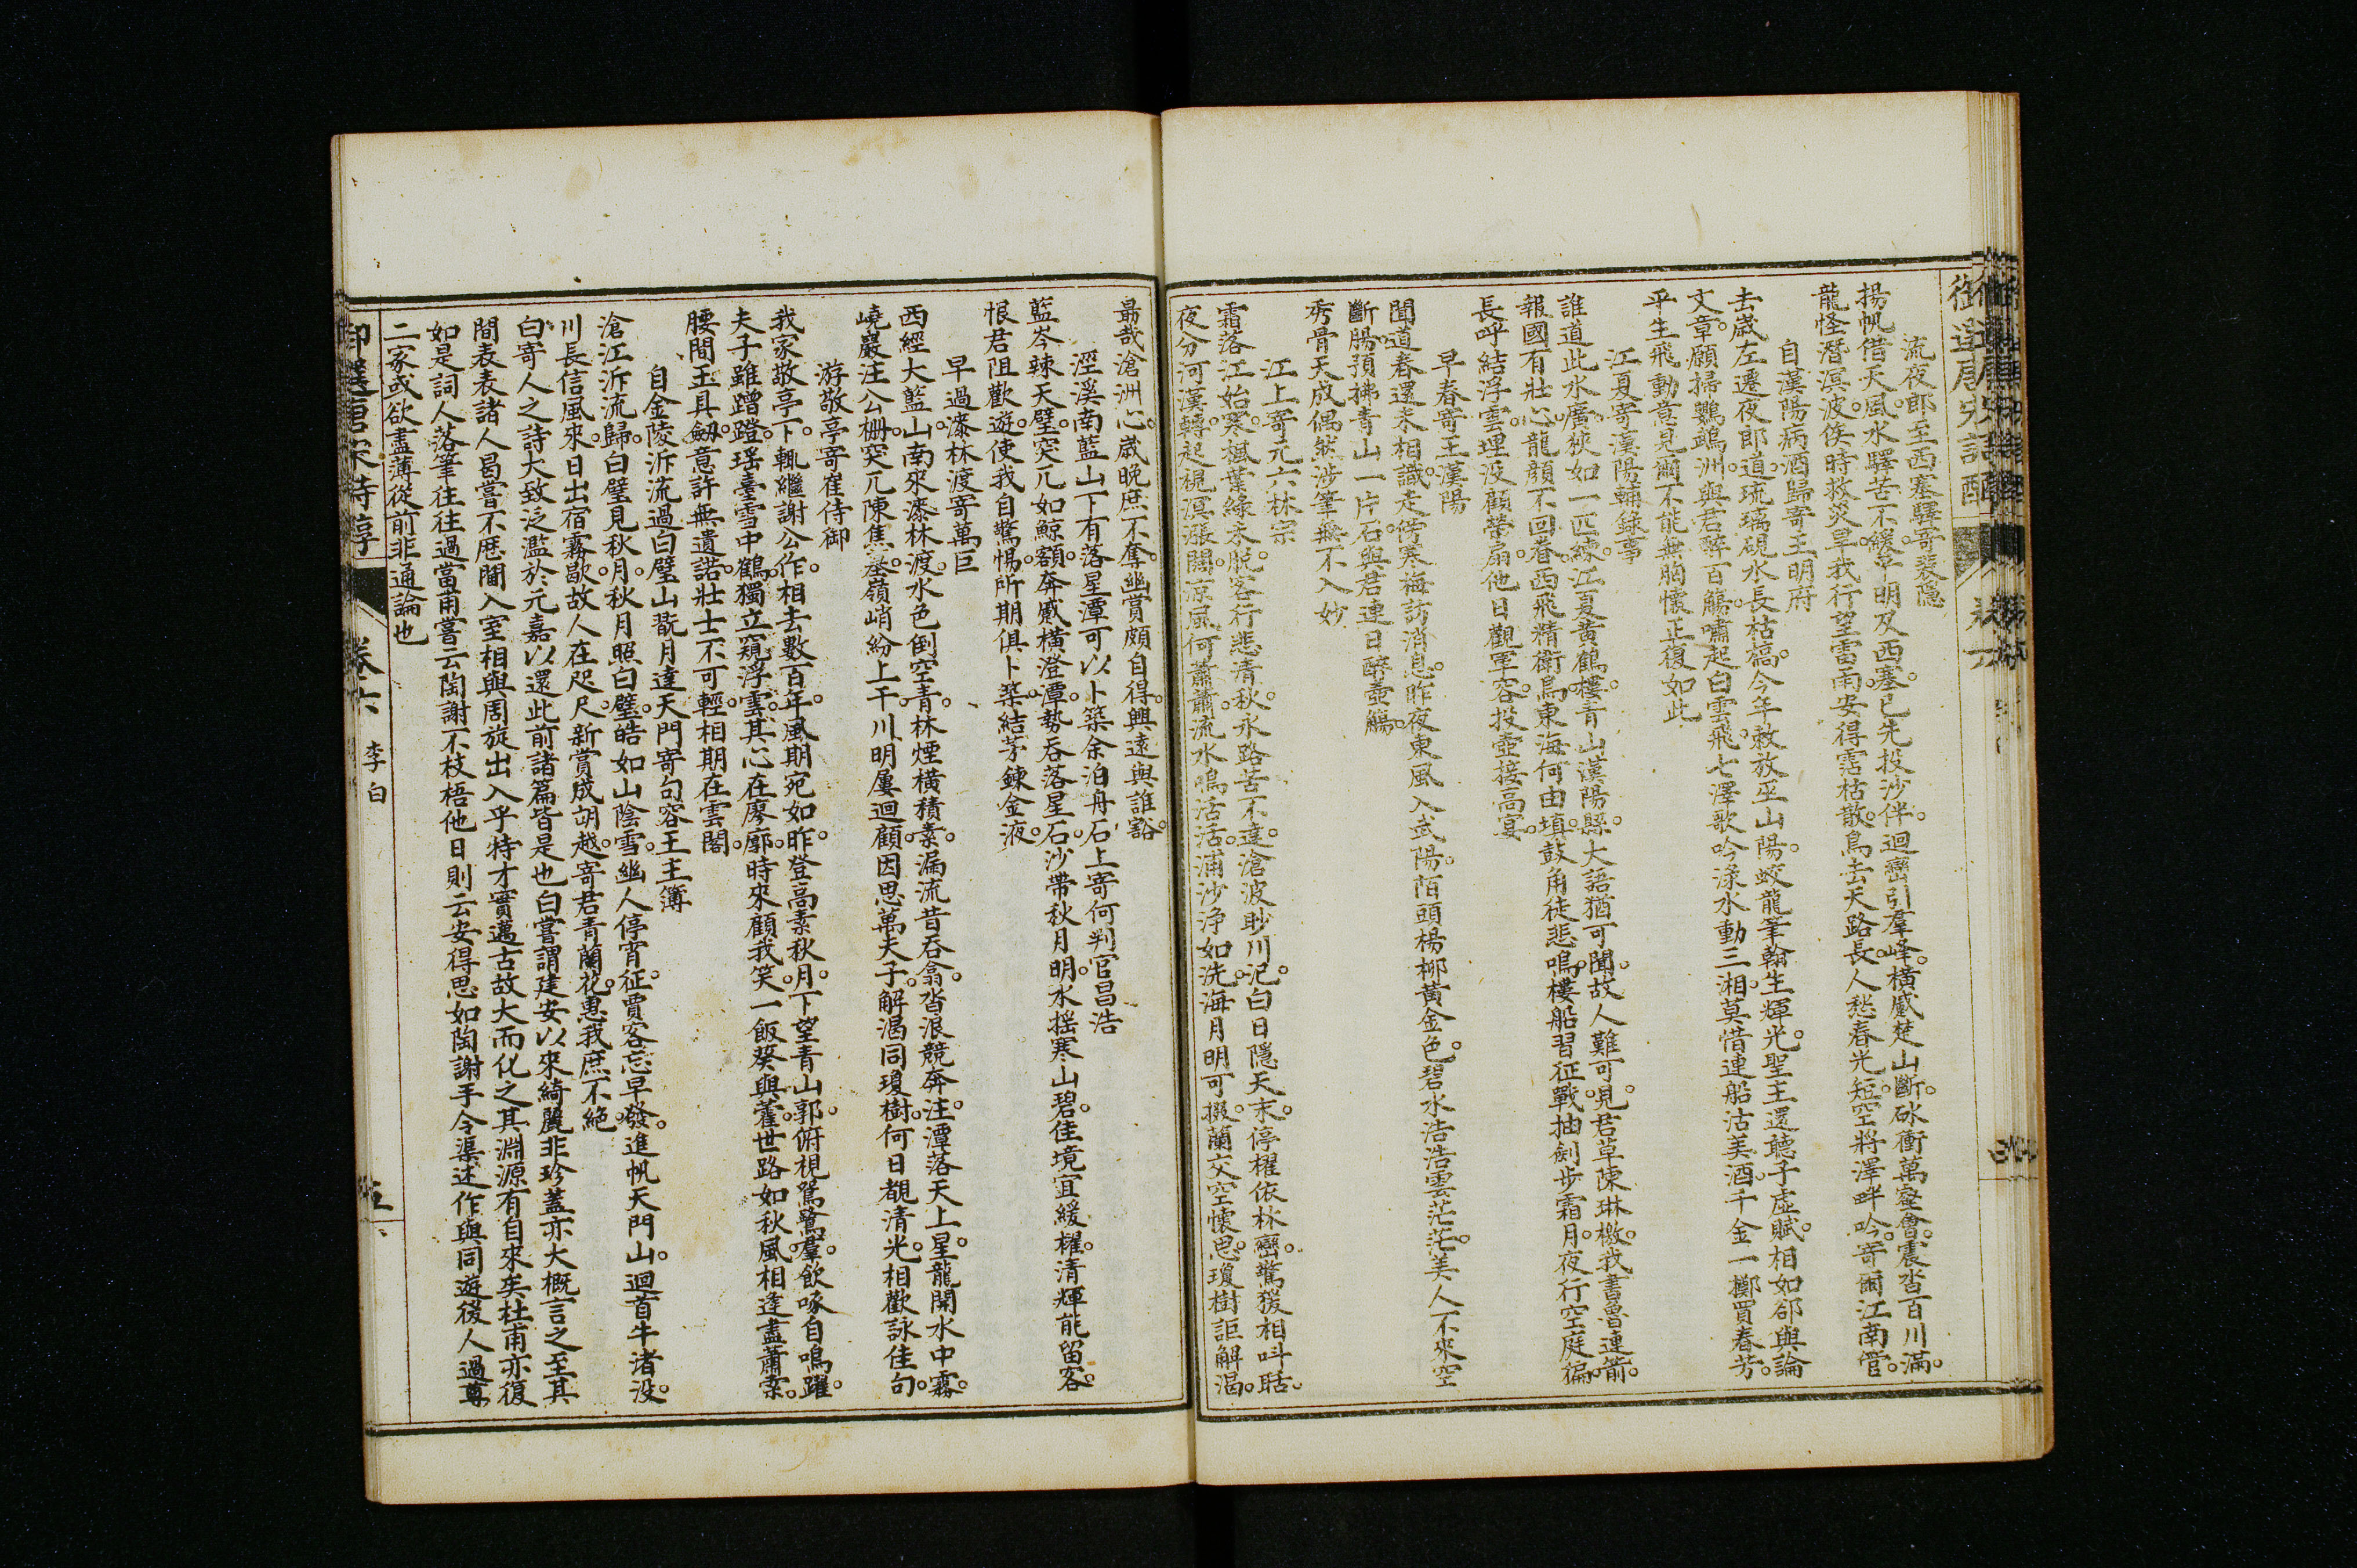 流夜郎至西塞驛寄裴隱
揚帆借天風。水驛苦不緩。平明及西塞。已先投沙伴。迴巒引羣峰。橫蹙楚山斷。砯衝萬壑會。震沓百川滿。
龍怪潛溟波。俟時救炎旱。我行望雷雨。安得霑枯散。鳥去天路長。人愁春光短。空將澤畔吟。寄爾江南管。
自漢陽病酒歸寄王明府
去歲左遷夜郎道。琉璃硯水長枯槁。今年敕放巫山陽。蛟龍筆翰生輝光。聖主還聽子虛賦。相如卻與論
文章。願掃鸚鵡洲。與君醉百觴。嘯起白雲飛七澤。歌吟淥水動三湘。莫惜連船沽美酒。千金一擲買春芳。
平生飛動意見爾不能無胸懷正復如此
江夏寄漢陽輔錄事
誰道此水廣。狹如一匹練。江夏黃鶴樓。青山漢陽縣。大語猶可聞。故人難可見。君草陳琳檄。我書魯連箭。
報國有壯心。龍顏不回眷。西飛精衛鳥。東海何由填。鼓角徒悲鳴。樓船習征戰。抽劍步霜月。夜行空庭徧。
長呼結浮雲。埋沒顧榮扇。他日觀軍容。投壺接高宴。
早春寄王漢陽
聞道春還未相識。走傍寒梅訪消息。昨夜東風入武陽。陌頭楊柳黃金色。碧水浩浩雲茫茫。美人不來空
斷腸。預拂青山一片石。與君連日醉壺觴。
秀骨天成偶然涉筆無不入妙
江上寄元六林宗
霜落江始寒。楓葉綠未脫。客行悲清秋。永路苦不達。滄波眇川汜。白日隱天末。停櫂依林巒。驚猨相叫聒。
夜分河漢轉。起視溟漲闊。涼風何蕭蕭。流水鳴活活。浦沙淨如洗。海月明可掇。蘭交空懷思。瓊樹詎解渴。
最哉滄洲心。歲晚庶不奪。幽賞頗自得。興遠與誰豁。
涇溪南藍山下有落星潭可以卜築余泊舟石上寄何判官昌浩
藍岑竦天壁。突兀如鯨額。奔蹙橫澄潭。勢吞落星石。沙帶秋月明。水搖寒山碧。佳境宜緩櫂。清輝能留客。
恨君阻歡遊。使我自驚惕。所期俱卜築。結茅鍊金液。
早過漆林渡寄萬巨
西經大藍山。南來漆林渡。水色倒空青。林煙橫積素。漏流昔吞翕。沓浪競奔注。潭落天上星。龍開水中霧。
嶢巖注公柵。突兀陳焦墓。嶺峭紛上干。川明屢迴顧。因思萬夫子。解渴同瓊樹。何日覩清光。相歡詠佳句。
游敬亭寄崔侍御
我家敬亭下。輒繼謝公作。相去數百年。風期宛如昨。登高素秋月。下望青山郭。俯視鴛鷺羣。飲啄自鳴躍。
夫子雖蹭蹬。瑤臺雪中鶴。獨立窺浮雲。其心在廖廓。時來顧我笑。一飯葵與藿。世路如秋風。相逢盡蕭索。
腰間玉具劒。意許無遺諾。壯士不可輕。相期在雲閣。
自金陵泝流過白璧山翫月達天門寄句容王主簿
滄江泝流歸。白璧見秋月。秋月照白璧。皓如山陰雪。幽人停宵征。賈客忘早發。進帆天門山。迴首牛渚沒。
川長信風來。日出宿霧歇。故人在咫尺。新賞成胡越。寄君青蘭花。惠我庶不絕。
白寄人之詩大致泛濫於元嘉以還此前諸篇皆是也白嘗謂建安以來綺麗非珍蓋亦大概言之至其
間表表諸人曷嘗不厯閫入室相與周旋出入乎特才實邁古故大而化之其淵源有自來矣杜甫亦復
如是詞人落筆往往過當甫嘗云陶謝不枝梧他日則云安得思如陶謝手令渠述作與同遊後人過尊
二家或欲盡薄從前非通論也
御選唐宋詩醇 卷六 李白 五